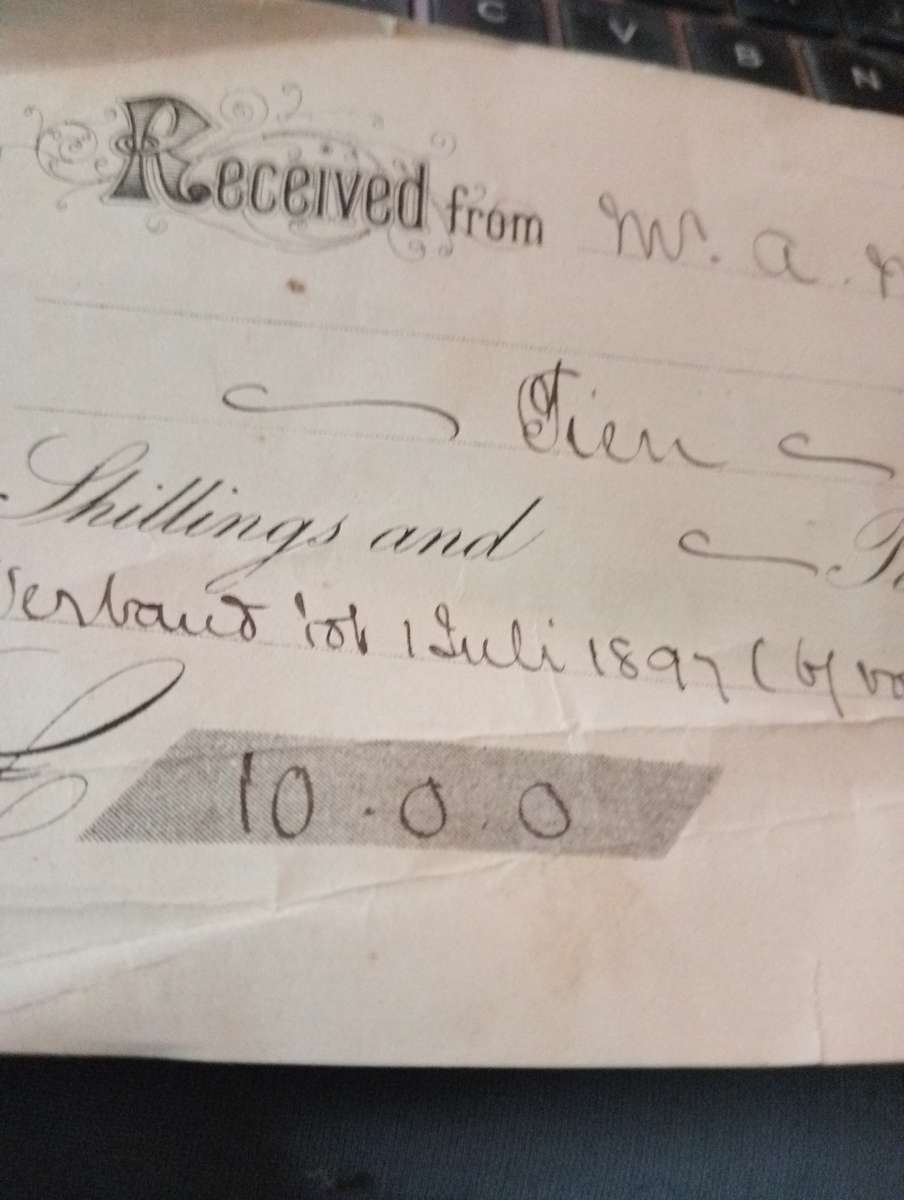 C V B N
Received from M. a.
Tien
Shillings and
Verband tot 1 Juli 1897 (
£ 10.0.0